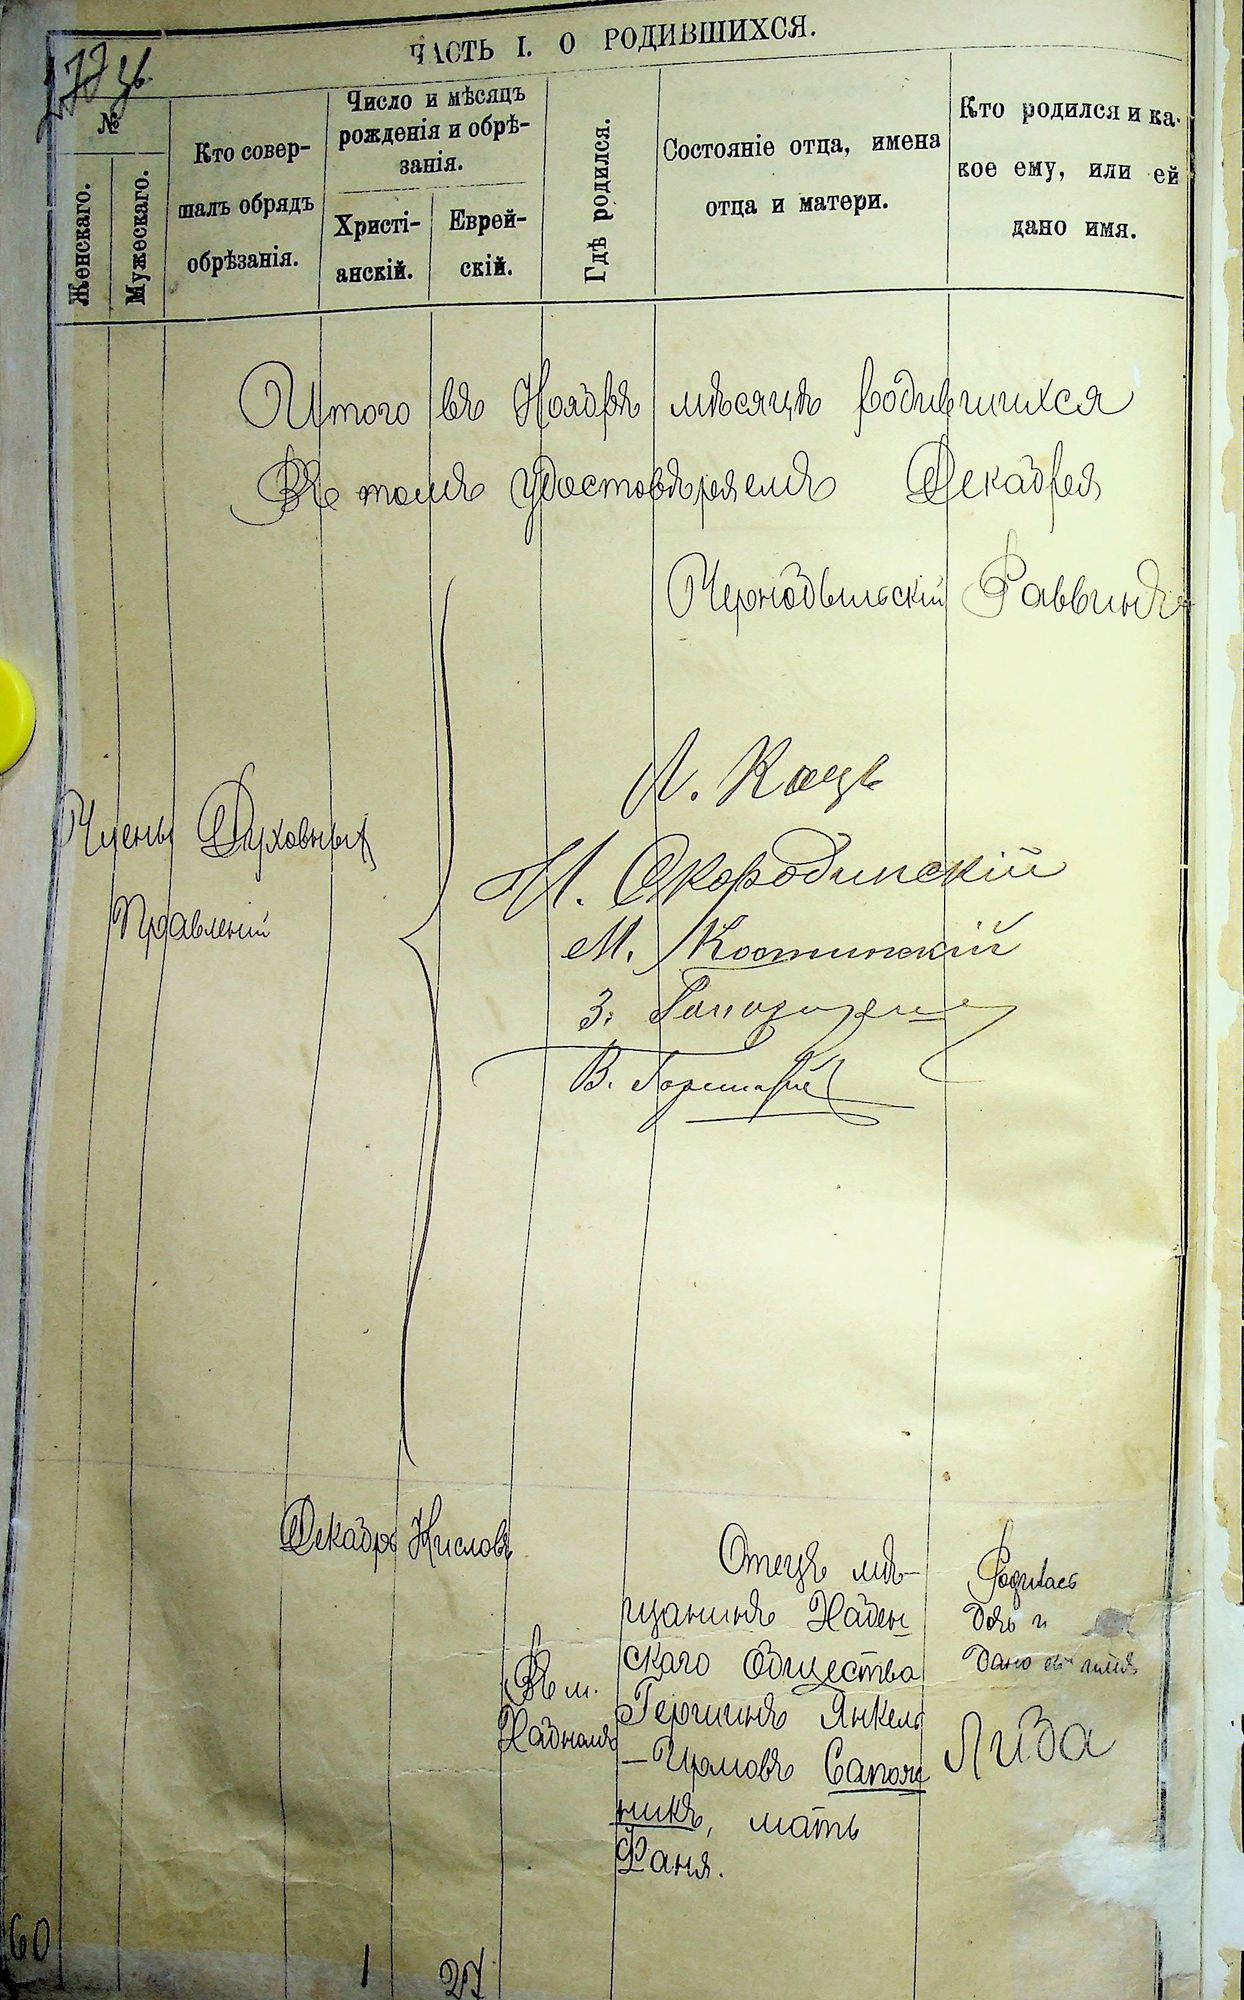 ЧАСТЬ I. О РОДИВШИХСЯ.
№
Женскаго.
Мужескаго.
Кто совер-
шалъ обрядъ
обрѣзанія.
Число и мѣсяцъ
рожденія и обрѣ-
занія.
Христі-
анскій.
Еврей-
скій.
Гдѣ родился.
Состояніе отца, имена
отца и матери.
Кто родился и ка-
кое ему, или ей
дано имя.
Итого въ Ноябрѣ мѣсяцѣ родившихся
Въ томъ удостовѣряемъ Декабря
Чернобыльскій Раввинъ
Члены Духовныхъ
Правленій
Л. Кацъ
И. Скородинскій
М. Костинскій
З.
В.
Декабрь Кислевъ
Въ м.
Хабномъ
Отецъ мѣ-
щанинъ Хабен-
скаго Общества
Гершинъ Янкель
-Шлемовъ Сапож
никъ, мать
Фаня.
Родилась
дочь и
дано ей имя
Лиза
60
1
27